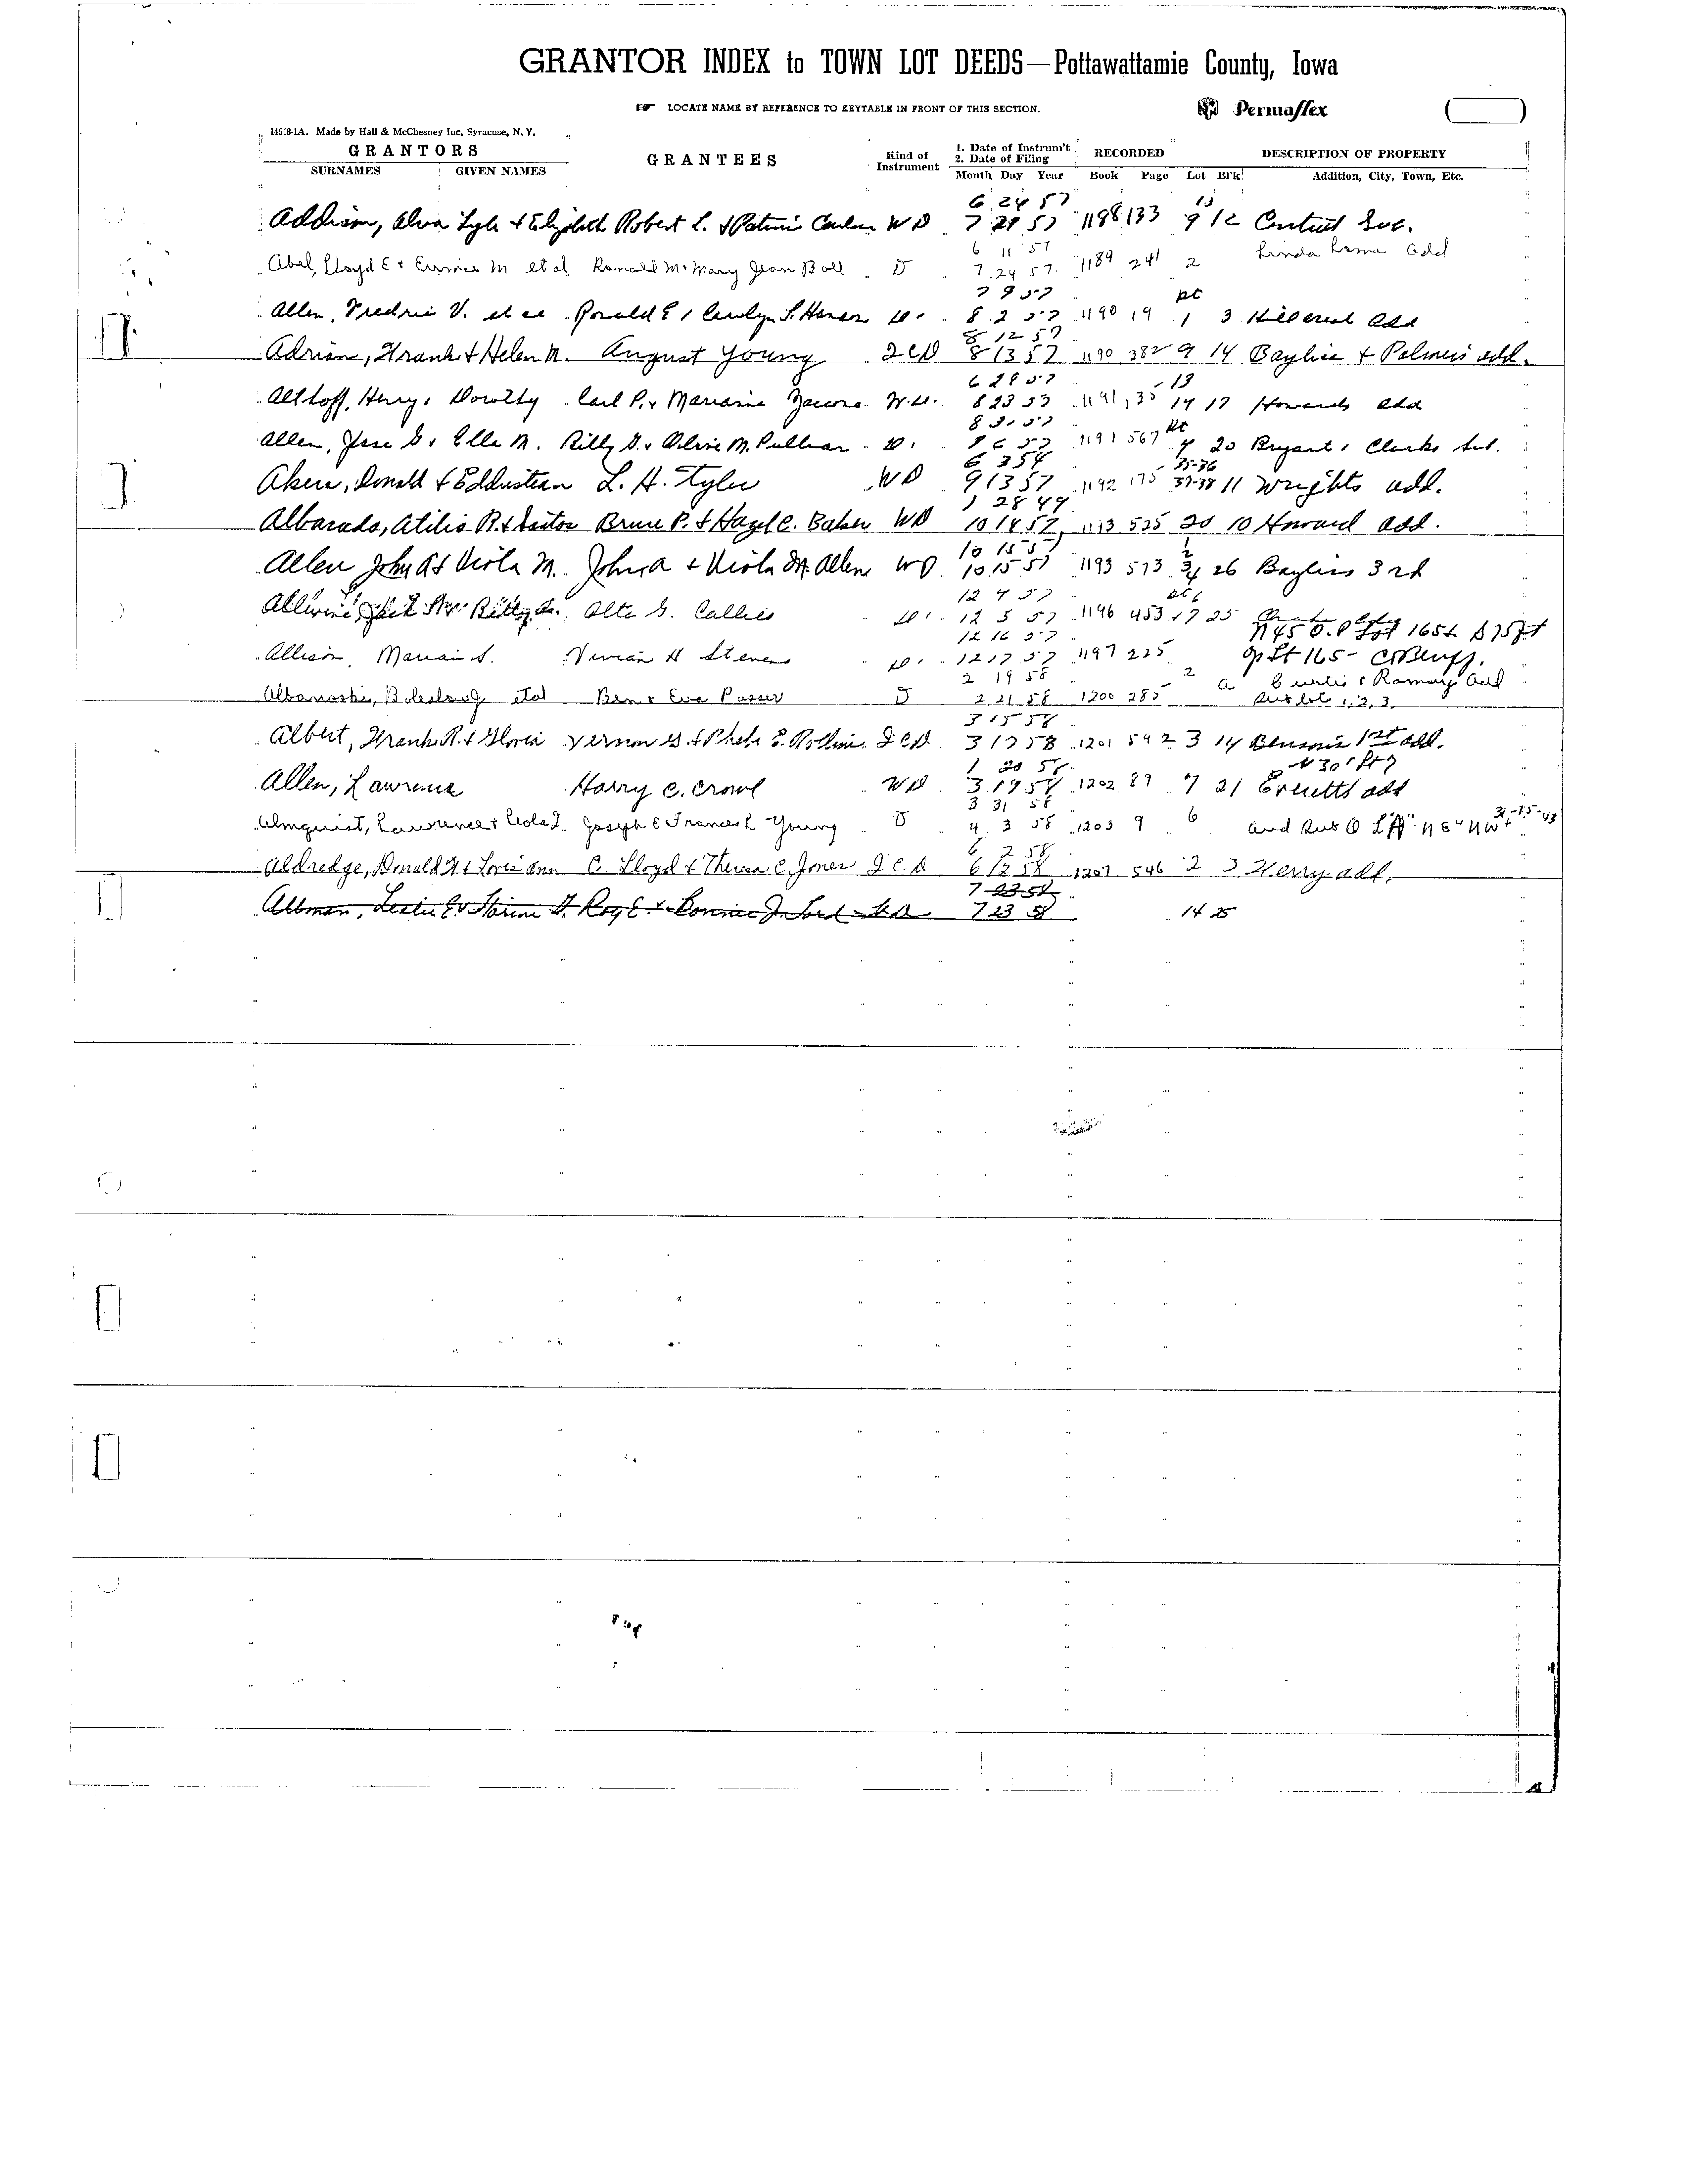 GRANTOR INDEX to TOWN LOT DEEDS—Pottawattamie County, Iowa
LOCATE NAME BY REFERENCE TO KEYTABLE IN FRONT OF THIS SECTION.
Permaflex
14648-1A. Made by Hall & McChesney Inc. Syracuse, N. Y.
GRANTORS
SURNAMES GIVEN NAMES
GRANTEES
Kind of Instrument
1. Date of Instrum't
2. Date of Filing
Month Day Year
RECORDED
Book Page Lot Bl'k
DESCRIPTION OF PROPERTY
Addition, City, Town, Etc.
6 24 57 13
Addison, Alva Lyle & Elizabeth Robert L. & WD 7 29 57 1188 133 9 12 Sub.
6 11 57 Linda Add
Abel, Lloyd E & M et al Ronald M & Mary Jean Ball D 7 24 57 1189 241 2
7 9 57 pt
Allen, Fredric V. et al Ronald E & Carolyn S. Hansen D. 8 2 57 1190 19 1 3 Hillcrest Add
8 12 57
Adrian, Frank & Helen M. August Young QCD 8 13 57 1190 382 9 14 Bayliss & Palmers add.
6 28 57 -13
Althoff, Henry & Dorothy Carl P. & Marianne W.D. 8 23 57 1191 35 14 17 Howards Add
8 31 57 pt
Allen, Jess G. & Ella M. Billy G. & M. Pullman D. 9 6 57 1191 567 4 20 Bryant & Clarks Sub.
6 3 54 35-36
Akers, Donald & L. H. Tyler WD 9 13 57 1192 175 37-38 11 Wrights add.
1 28 49
Albarado, Atilio R. & Bruce P. & Hazel C. Baker WD 10 14 57 1193 525 20 10 Howard add.
10 15 57 1 2
Allen John A & Viola M. John A & Viola M. Allen WD 10 15 57 1193 573 3/4 26 Bayliss 3rd
12 4 57 pt 6
Allwine, Jack & Betty Alta G. Callies D. 12 5 57 1196 453 17 25
12 16 57 N 45 O.P Lot 165 & S 75 ft
Allison, Marian S. Vivian H Stevens D. 12 17 57 1197 225 op Lt 165- C Bluff.
2 19 58 2 a Curtis & Ramsey Add
et al Ben & Eva Passer D 2 21 58 1200 285 Sub lots 1, 2, 3.
3 15 58
Albert, Frank R. & Gloria Vernon G. & E. QCD 3 17 58 1201 592 3 14 Bensons 1st add.
1 20 58 N 30' pt 7
Allen, Lawrence Harry C. Crowl WD 3 19 58 1202 89 7 21 Everetts add
3 31 58
Almquist, Lawrence & Leola I. Joseph E Frances L Young D 4 3 58 1203 9 6 and Aud Sub O L "A" NE 4 NW 4 31-75-43
6 2 58
Aldredge, Donald W & Lois Ann C. Lloyd & Theresa C. Jones QCD 6 12 58 1207 546 2 3 Terry add.
7 23 58
Allman, Leslie E. & Roy E. & Bonnie J. Ford WD 7 23 58 14 25